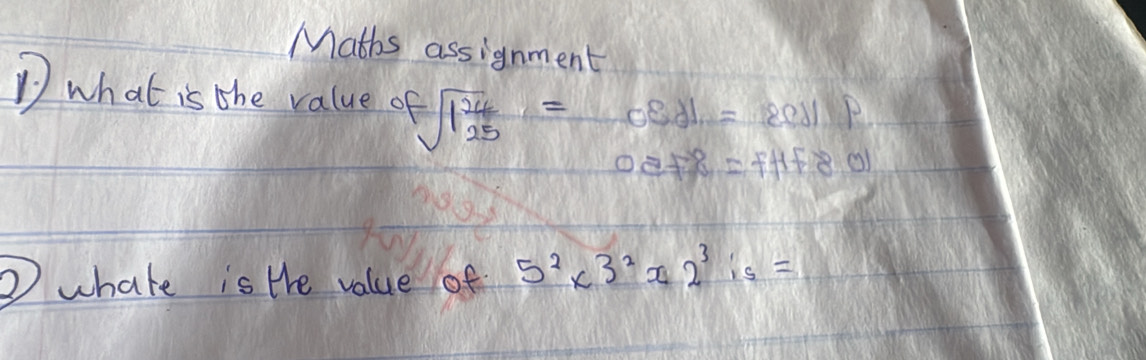 Maths assignment
1) What is the value of √1 24/25 =
2) whate is the value of 5² × 3² x 2³ is =